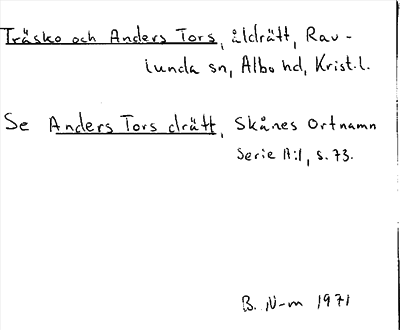 Träsko och Anders Tors, åldrätt, Rav-
lunda sn, Albo hd, Krist.l.
Se Anders Tors drätt, Skånes Ortnamn
Serie A:1, s. 73.
B. N-m 1971